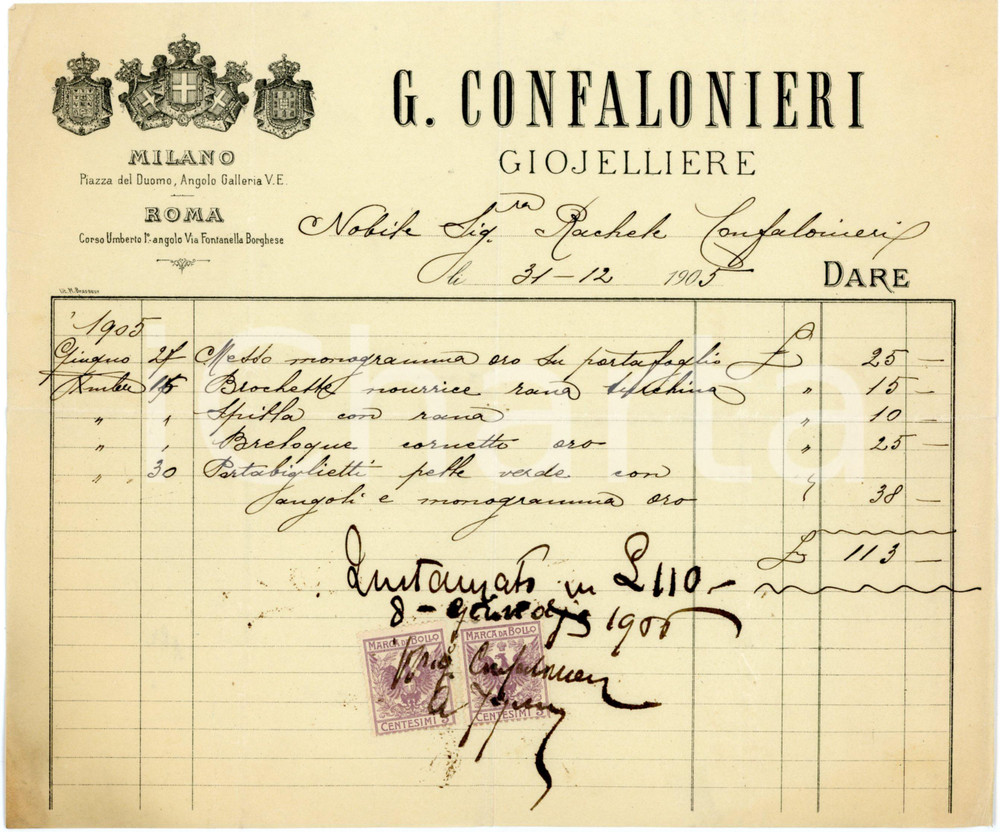 G. CONFALONIERI
GIOJELLIERE
MILANO
Piazza del Duomo, Angolo Galleria V.E.
ROMA
Corso Umberto Iº angolo Via Fontanella Borghese
Nobile Sig.ra Rachele Confalonieri
li 31-12 1905
DARE
1905
Giugno 27 Messo monogramma oro su portafoglio £ 25 —
Xmbre 15 Brochette nourrice rana turchina " 15 —
" " Spilla con rana " 10 —
" " Breloque cornetto oro " 25 —
" 30 Portabiglietti pelle verde con
angoli e monogramma oro " 38 —
£ 113 —
Quitanzato in £ 110.-
8 - gennaio 1906
MARCA DA BOLLO MARCA DA BOLLO
Confalonieri
CENTESIMI 5 CENTESIMI 5
iCharta